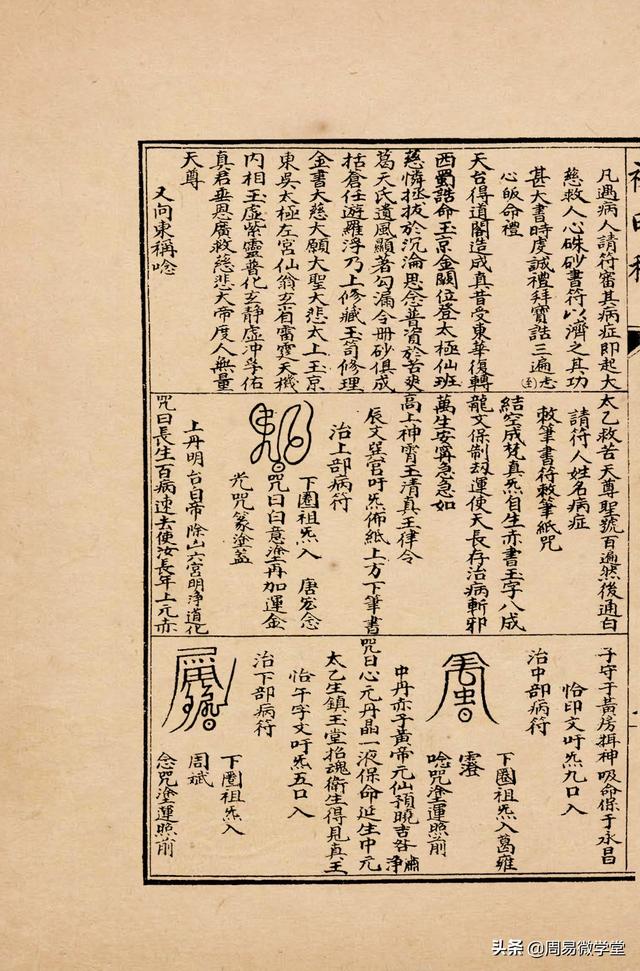 凡遇病人請符審其病症即起大
慈救人心硃砂書符以濟之其功
甚大書時虔誠禮拜寶誥三遍
志心皈命禮
天台得道閣造成真昔受東華復轉
西蜀誥命玉京金闕位登太極仙班
慈憐拯拔於沉淪思念普資於苦爽
葛天氏遺風顯著勾漏令丹砂俱成
括倉任遊羅浮乃上修藏玉笥修理
金書大慈大願大聖大悲太上玉京
東吳太極左宮仙翁玄省雷霆天機
內相玉虛紫靈普化玄靜虛冲孚佑
真君垂恩廣救慈悲大帝度人無量
天尊
又向東稱唸
太乙救苦天尊聖號百遍然後通白
請符人姓名病症
敕筆書符敕筆紙咒
結空成梵真炁自生赤書玉字八威
龍文保制劫運使天長存治病斬邪
萬生安寧急急如
高上神霄玉清真王律令
辰文巽宮吁炁佈紙上方下筆書
治上部病符
下圈祖炁入 唐宏念
咒曰白意塗再加運金
光咒篆塗蓋
上丹明台自帝除 六宮明淨道化
咒曰長生百病速去使汝長年上元赤
子守于黃房揖神吸命保于永昌
恰印文吁炁九口入
治中部病符
下圈祖炁入葛雍
霪
唸咒塗運照前
中丹赤子黃帝元仙預曉吉咎 淨
咒曰心元丹晶一液保命延生中元
太乙生鎮玉堂招魂衛生得見真王
恰午字文吁炁五口入
治下部病符
下圈祖炁入
周斌
念咒塗運照前
头条 @周易微学堂